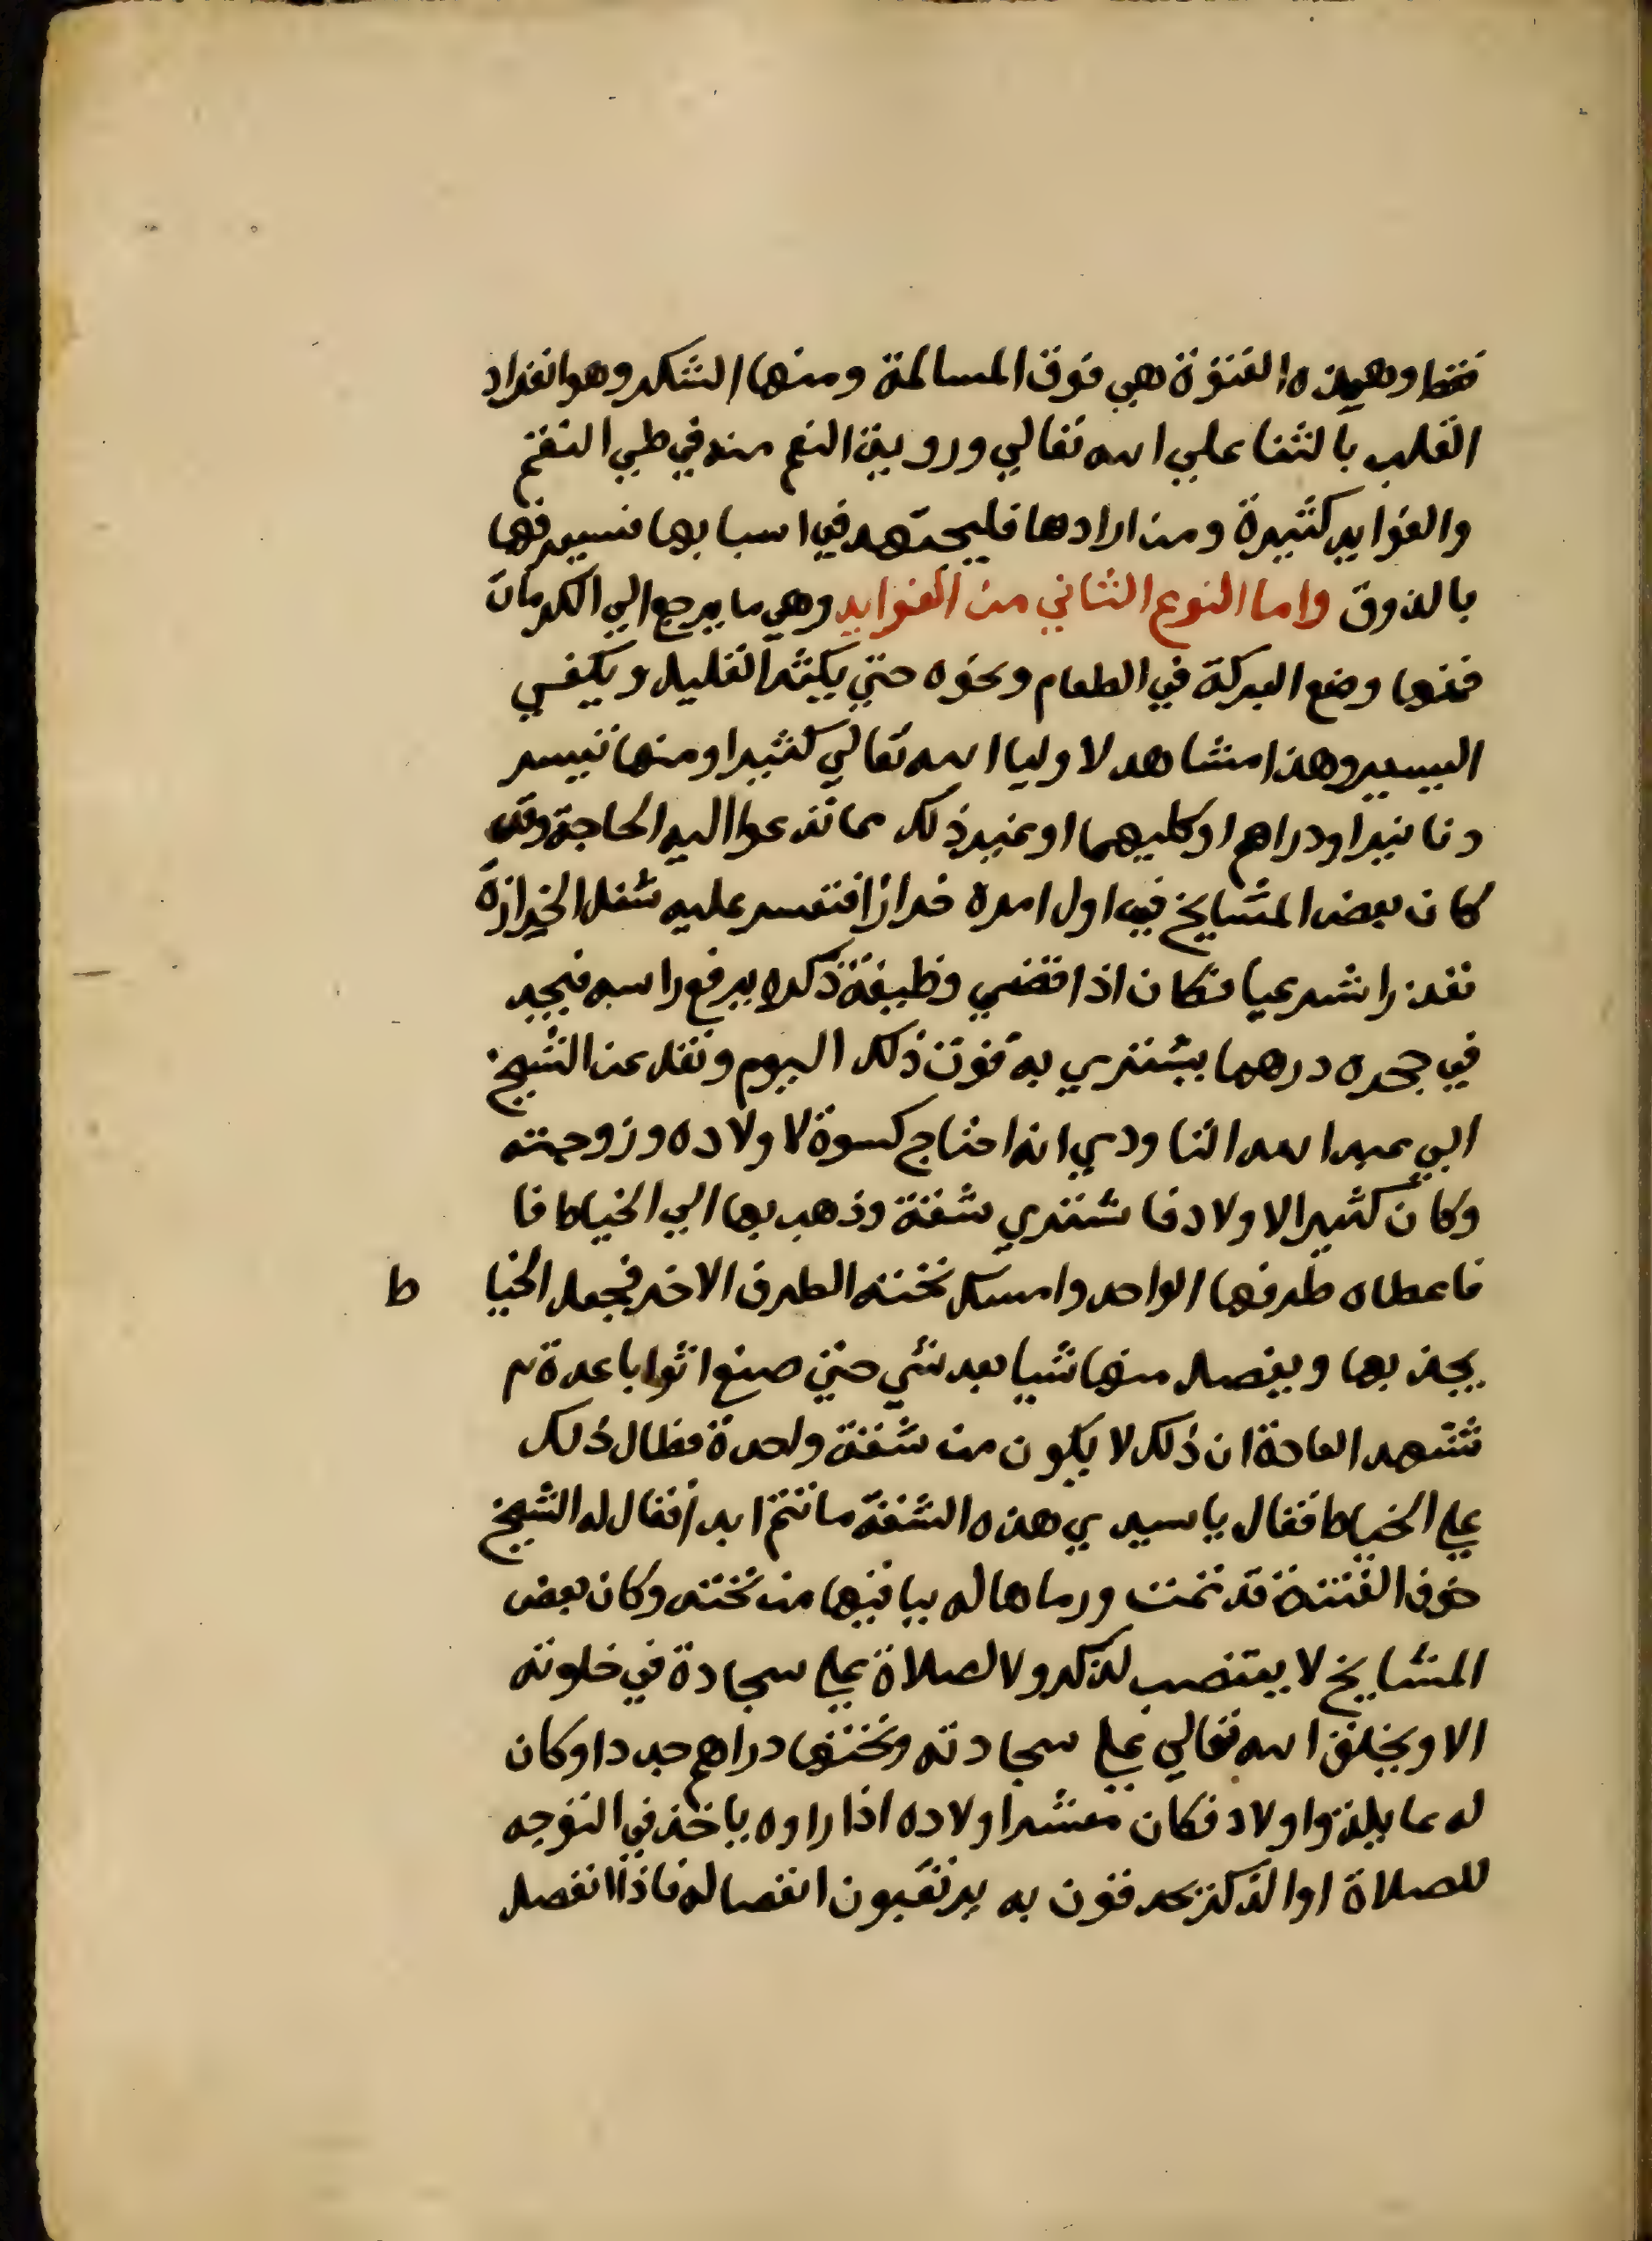 فقط وهذه الفتوة هي فوق المسالمة ومنها الشكر وهو انفراد
القلب بالثنا علي الله تعالي وروية النعم منه في طي النقم
والفوايد كثيرة ومن ارادها فليجتهد في اسبابها فسيعرفها
بالذوق واما النوع الثاني من الفوايد وهي ما يرجع الي الكرمات
فمنها وضع البركة في الطعام ونحوه حتي يكثر القليل ويكفي
اليسير وهذا مشاهد لاوليا الله تعالي كثيرا ومنها تيسر
دنانير او دراهم او كليهما او غير ذلك مما تدعوا اليه الحاجة وقد
كان بعض المشايخ في اول امره خرازا فتعسر عليه شغل الخرازة
تعذرا شرعيا فكان اذا قضي وظيفة ذكره يرفع راسه فيجد
في حجره درهما يشتري به قوت ذلك اليوم ونقل عن الشيخ
ابي عبد الله التاودي انه احتاج كسوة لاولاده وزوجته
وكان كثير الاولاد فاشتري شقة وذهب بها الي الخياط فا
فاعطاه طرفها الواحد وامسك تحته الطرف الاخر فجعل الخيا ط
يجذبها ويفصل منها شيا بعد شي حتي صنع اثوابا عدة م
تشهد العادة ان ذلك لا يكون من شقة واحدة فطال ذلك
علي الخياط فقال يا سيدي هذه الشقة ما تتم ابدا فقال له الشيخ
خوف الفتنة قد تمت ورماها له بباقيها من تحته وكان بعض
المشايخ لا ينتصب لذكر ولا لصلاة علي سجادة في خلوته
الا ويخلق الله تعالي علي سجادته وتحتها دراهم جددا وكان
له عايلة واولاد فكان معشر اولاده اذا راوه ياخذ في التوجه
للصلاة او الذكر يحدقون به يرتقبون انفصاله فاذا انفصل